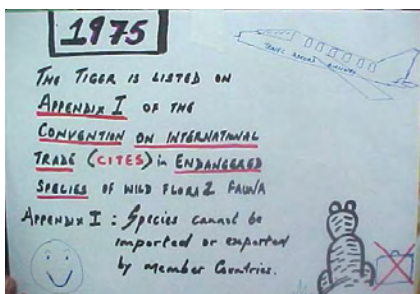 1975
THE TIGER IS LISTED ON
APPENDIX I OF THE
CONVENTION ON INTERNATIONAL
TRADE (CITES) in ENDANGERED
SPECIES OF WILD FLORA & FAUNA
APPENDIX I : Species cannot be
imported or exported
by member Countries.